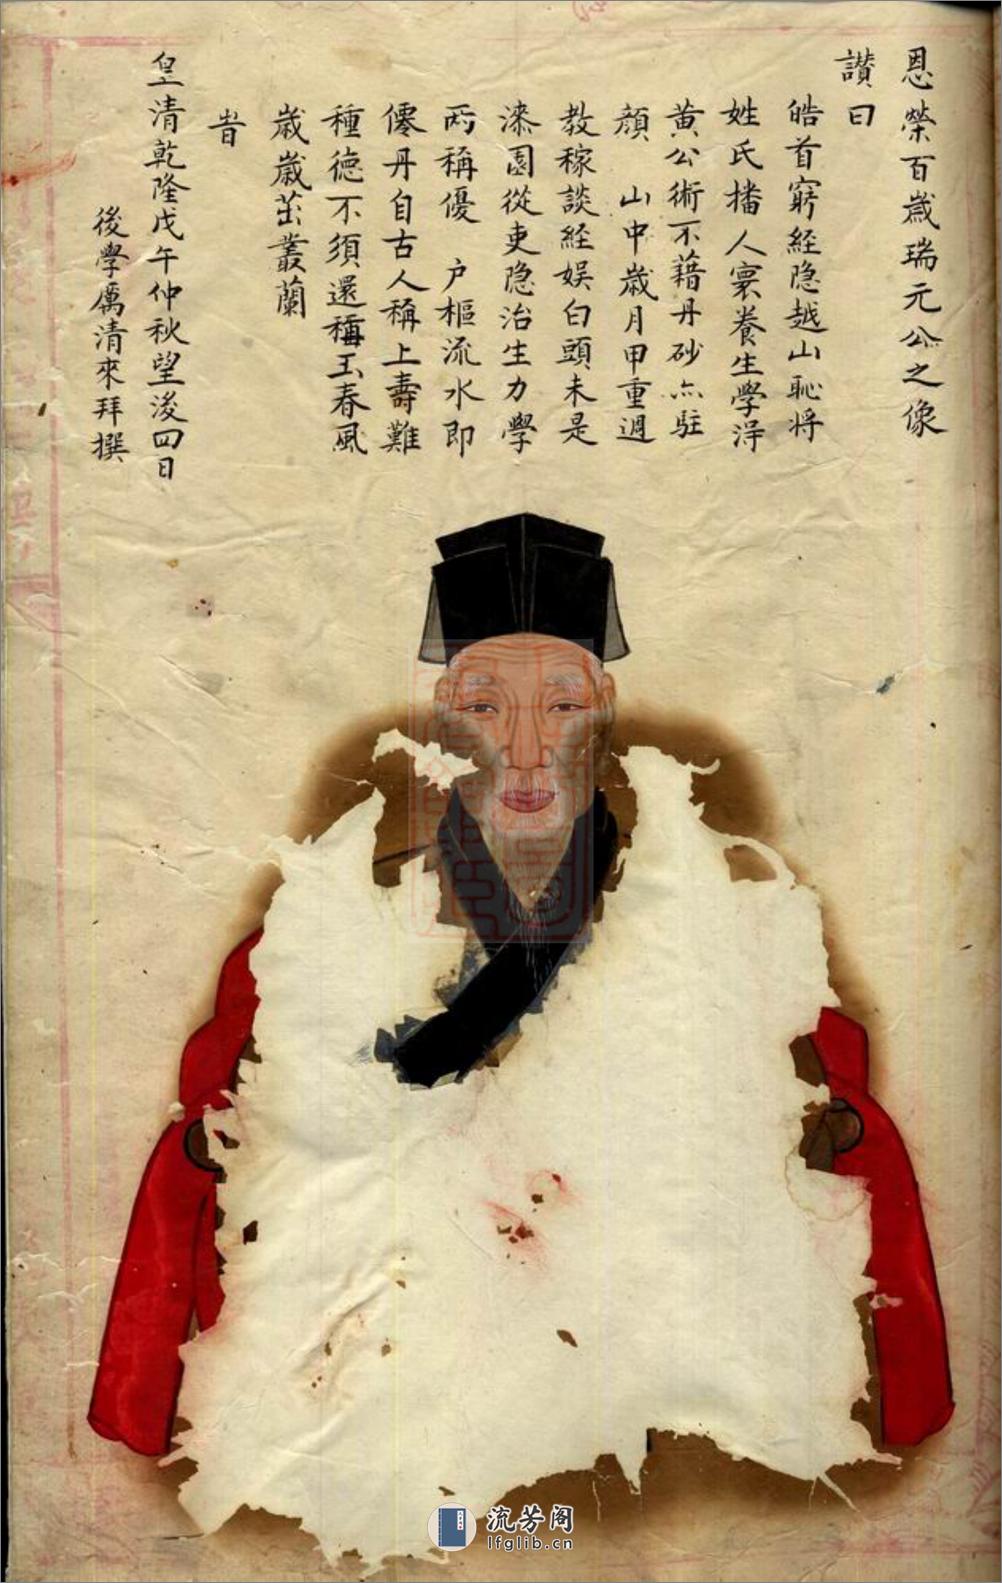 恩榮百歲瑞元公之像
讚曰
皓首窮經隐越山恥将
姓氏播人寰養生學淂
黄公術不藉丹砂亦駐
顔 山中歲月甲重週
教稼談経娯白頭未是
漆園從吏隐治生力學
兩稱優 户樞流水即
僊丹自古人稱上壽難
種徳不須還種玉春風
歲歲茁叢蘭
旹
皇清乾隆戊午仲秋望後四日
後學厲清來拜撰
流芳阁
lfglib.cn